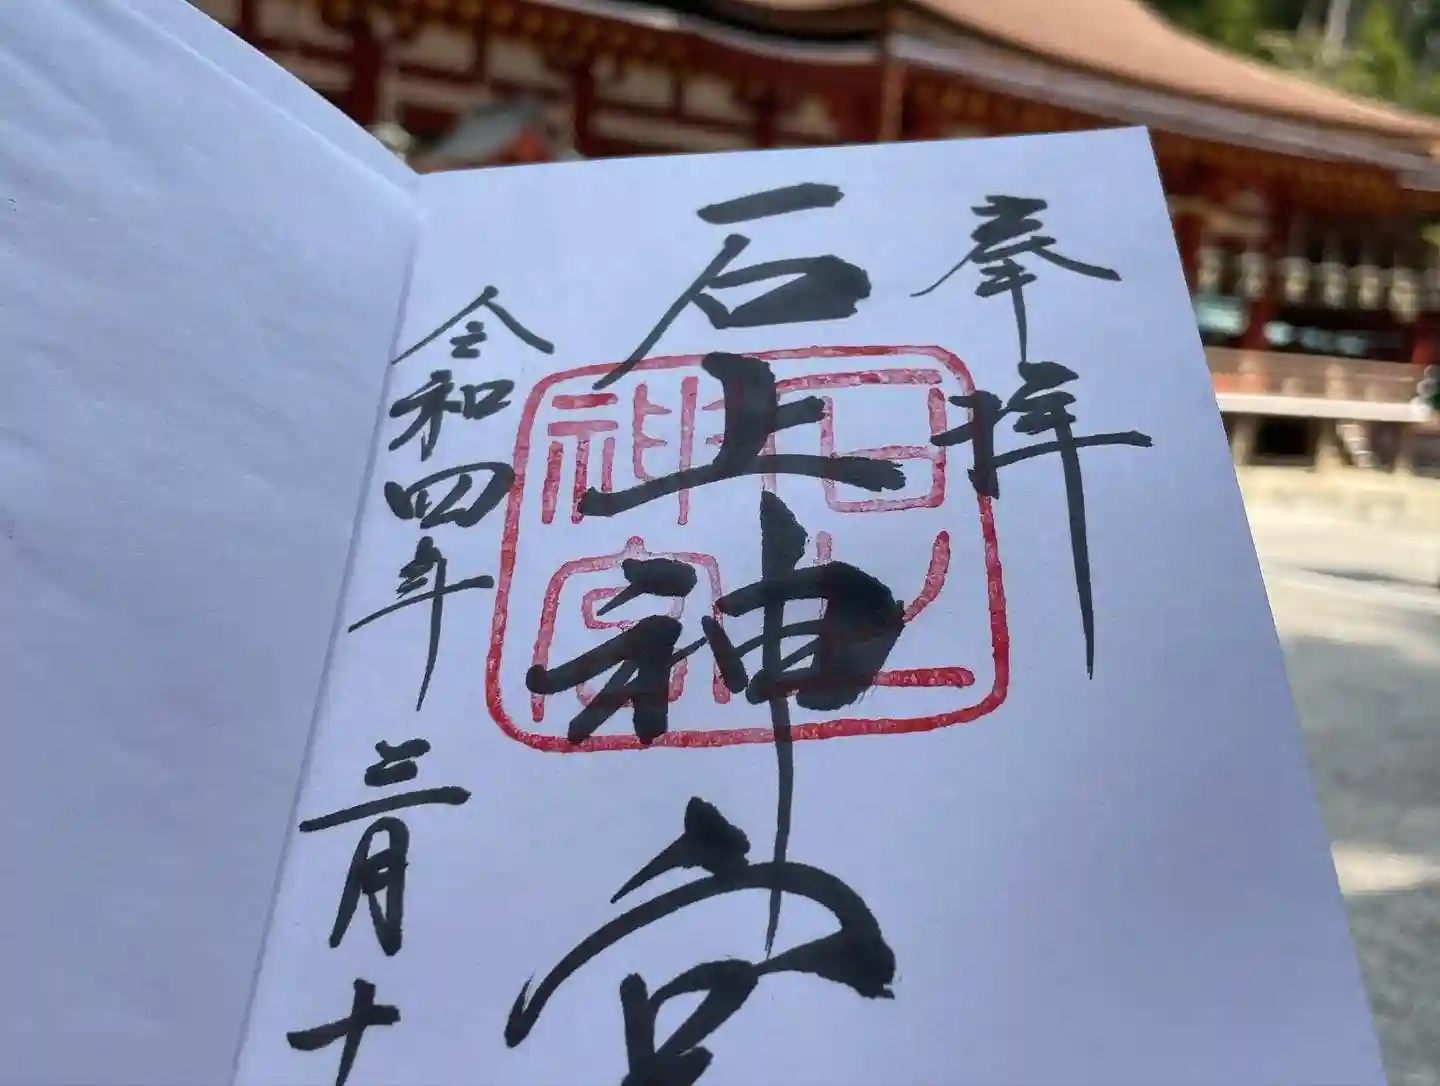 奉拝
石上神宮
令和四年三月十
石上神宮